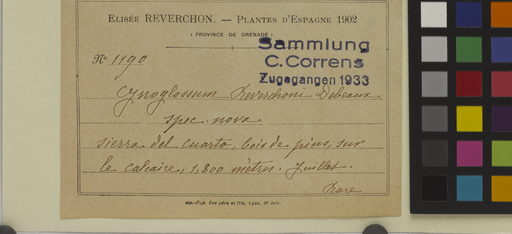 Elisée REVERCHON. — Plantes d'Espagne 1902
( PROVINCE DE GRENADE )
Sammlung
C. Correns
Zugegangen 1933
No 1190
Cynoglossum Reverchoni Debeaux.
spec. nova.
Sierra del Cuarto, bois de pins, sur
le calcaire, 1,800 mètres. Juillet.
Rare